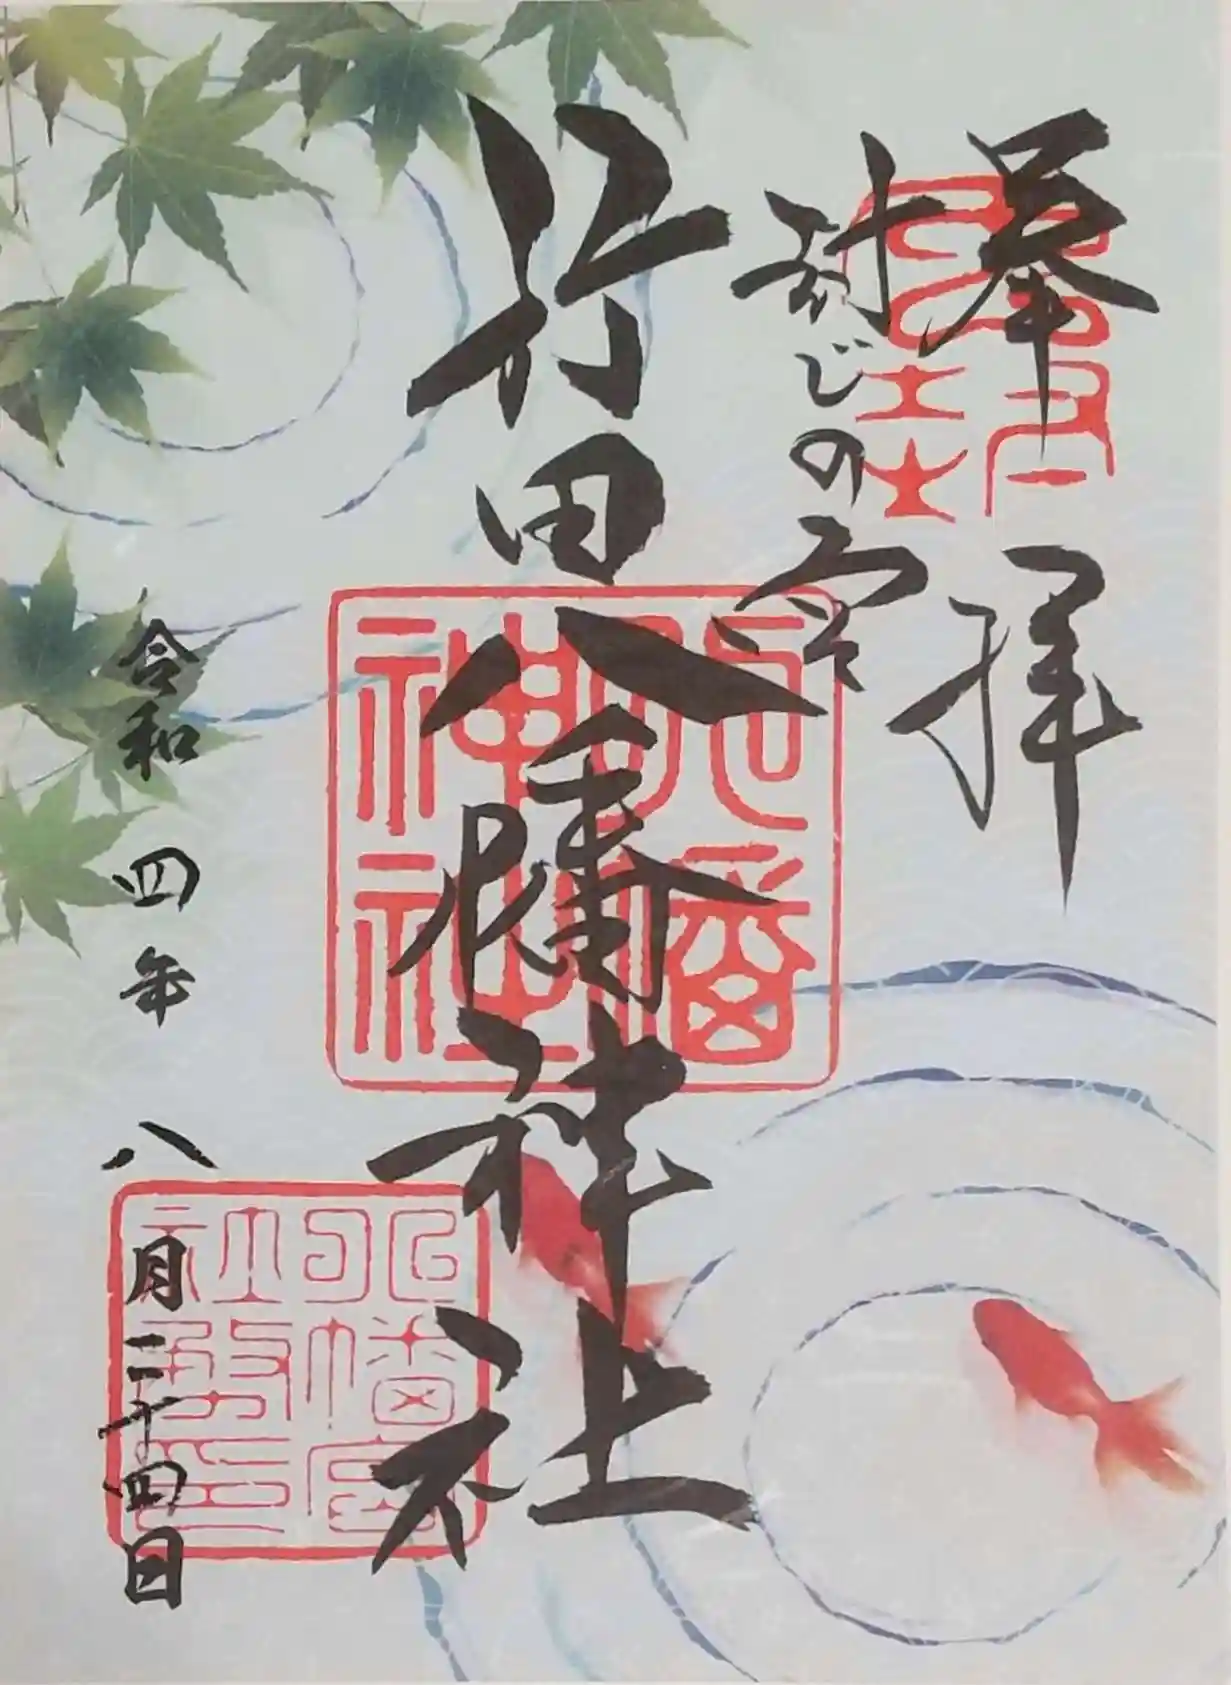 奉拝
封じの宮
行田八幡神社
令和四年八月二十四日
八幡神社